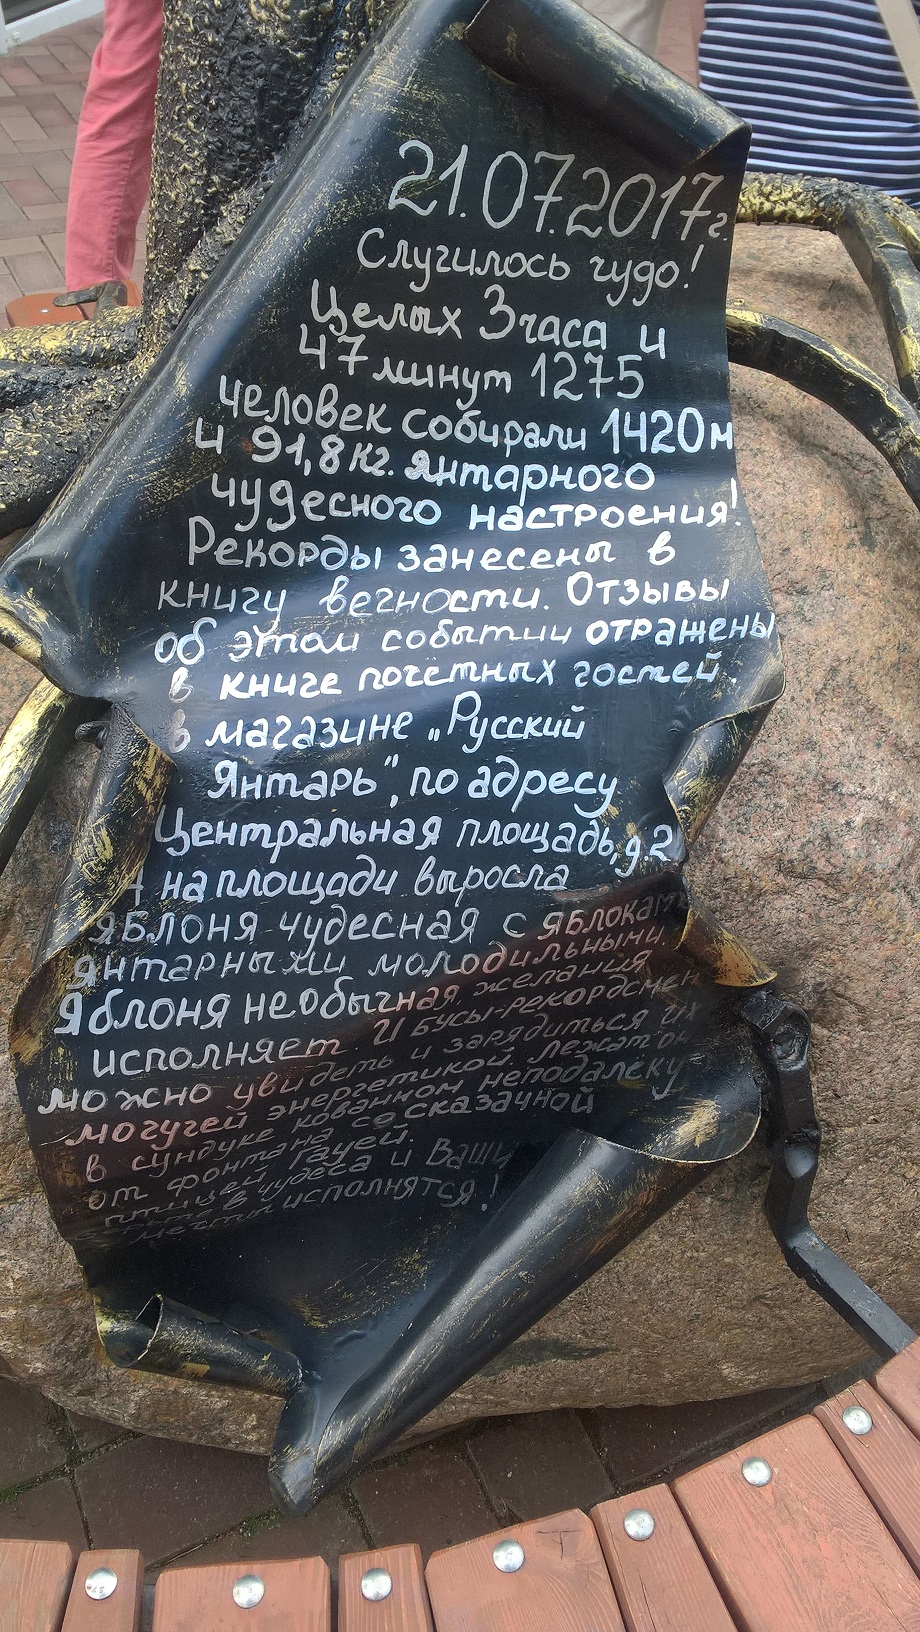 21.07.2017г.
Случилось чудо!
Целых 3 часа и
47 минут 1275
человек собирали 1420м
и 91,8 кг. янтарного
чудесного настроения!
Рекорды занесены в
книгу вечности. Отзывы
об этом событии отражены
в книге почётных гостей
в магазине „Русский
Янтарь", по адресу
Центральная площадь, д.2
А на площади выросла
яблоня чудесная с яблоками
янтарными молодильными.
Яблоня необычная, желания
исполняет. И бусы-рекордсмен
можно увидеть и зарядиться их
могучей энергетикой лежат они
в сундуке кованном неподалёку
от фонтана со сказачной
птицей Гауей.
в чудеса и Ваши
мечты исполнятся!